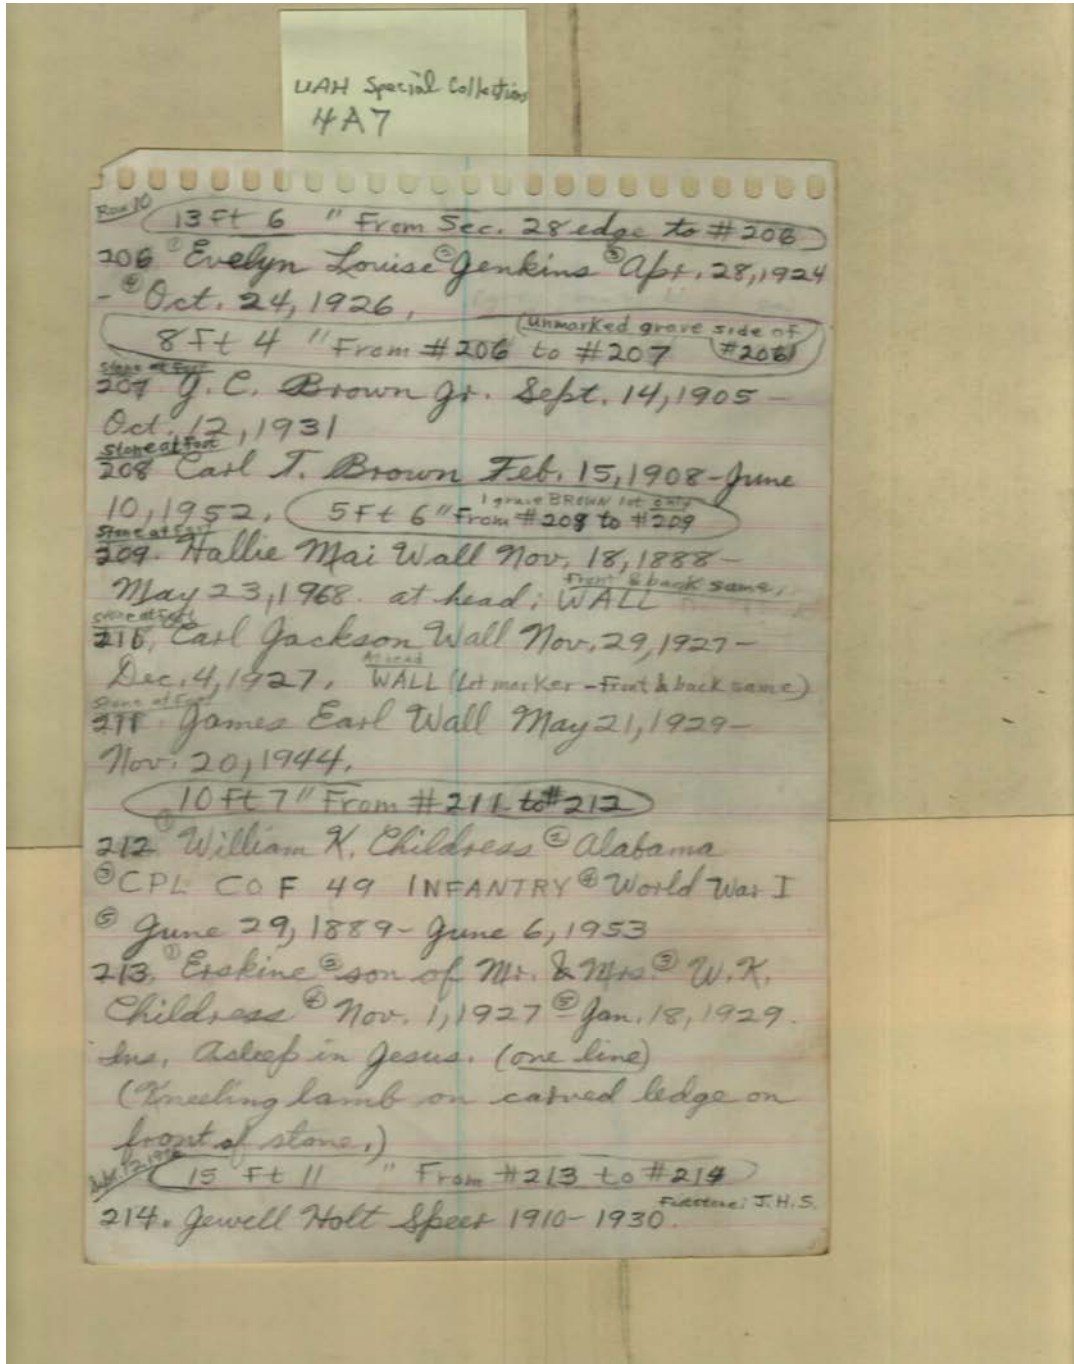 UAH Special Collections
4A7
Row 10
13 Ft 6 " From Sec. 28 edge to #206
206 ① Evelyn Louise ② Jenkins ③ Apr. 28, 1924
- ④ Oct. 24, 1926,
(unmarked grave side of
8 Ft 4 " From #206 to #207 #206)
Stone at Foot
207 J. C. Brown Jr. Sept. 14, 1905 -
Oct. 12, 1931
Stone at Foot
208 Carl T. Brown Feb. 15, 1908 - June
1 grave BROWN lot only
10, 1952. 5 Ft 6" From #208 to #209
Stone at Foot
209. Hallie Mai Wall Nov. 18, 1888 -
Front & back same.
May 23, 1968. at head: WALL
Stone at Foot
210. Carl Jackson Wall Nov. 29, 1927 -
At head
Dec. 4, 1927. WALL (Lot marker - Front & back same)
Stone at Foot
211 James Earl Wall May 21, 1929 -
Nov. 20, 1944.
10 Ft 7" From #211 to #212
212 ① William K. Childress ② Alabama
③ CPL CO F 49 INFANTRY ④ World War I
⑤ June 29, 1889 - June 6, 1953
213. ① Erskine ② son of Mr. & Mrs. ③ W. K.
Childress ④ Nov. 1, 1927 ⑤ - Jan. 18, 1929.
Ins. Asleep in Jesus. (one line)
(Kneeling lamb on carved ledge on
front of stone.)
15 Ft 11 " From #213 to #214
Footstone: J.H.S.
214. Jewell Holt Speer 1910 - 1930.